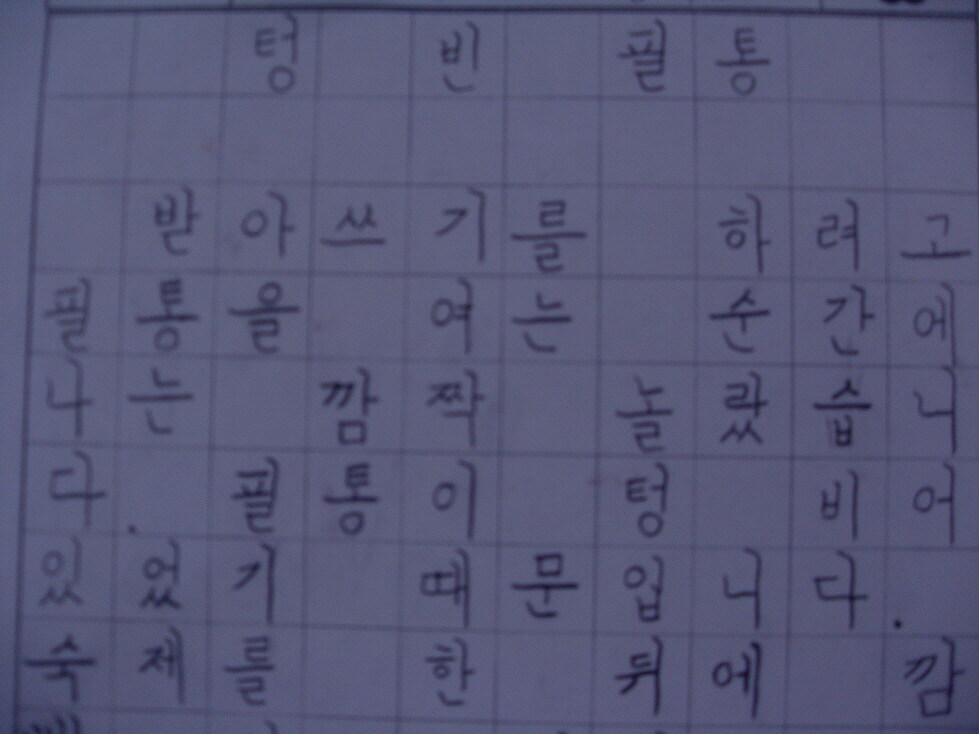 텅 빈 필통
받아쓰기를 하려고
필통을 여는 순간에
나는 깜짝 놀랐습니
다. 필통이 텅 비어
있었기 때문입니다.
숙제를 한 뒤에 깜